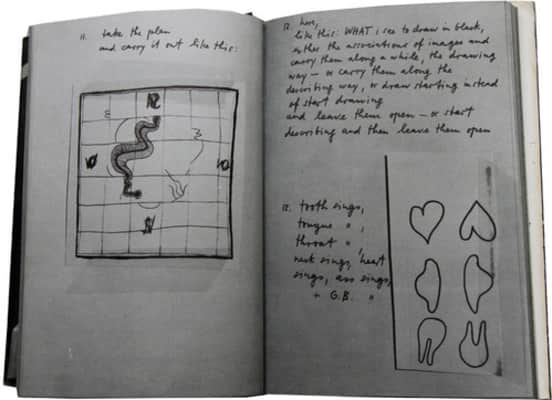 11. take the plan
and carry it out like this:
12. here,
like this: WHAT i see to draw in black,
either the associations of images and
carry them along a while, the drawing
way – or carry them along the
describing way, or draw starting instead
of start drawing
and leave them open – or start
describing and then leave them open
13. tooth sings,
tongue " ,
throat " ,
neck sings, heart
sings, ass sings,
+ G.B. "